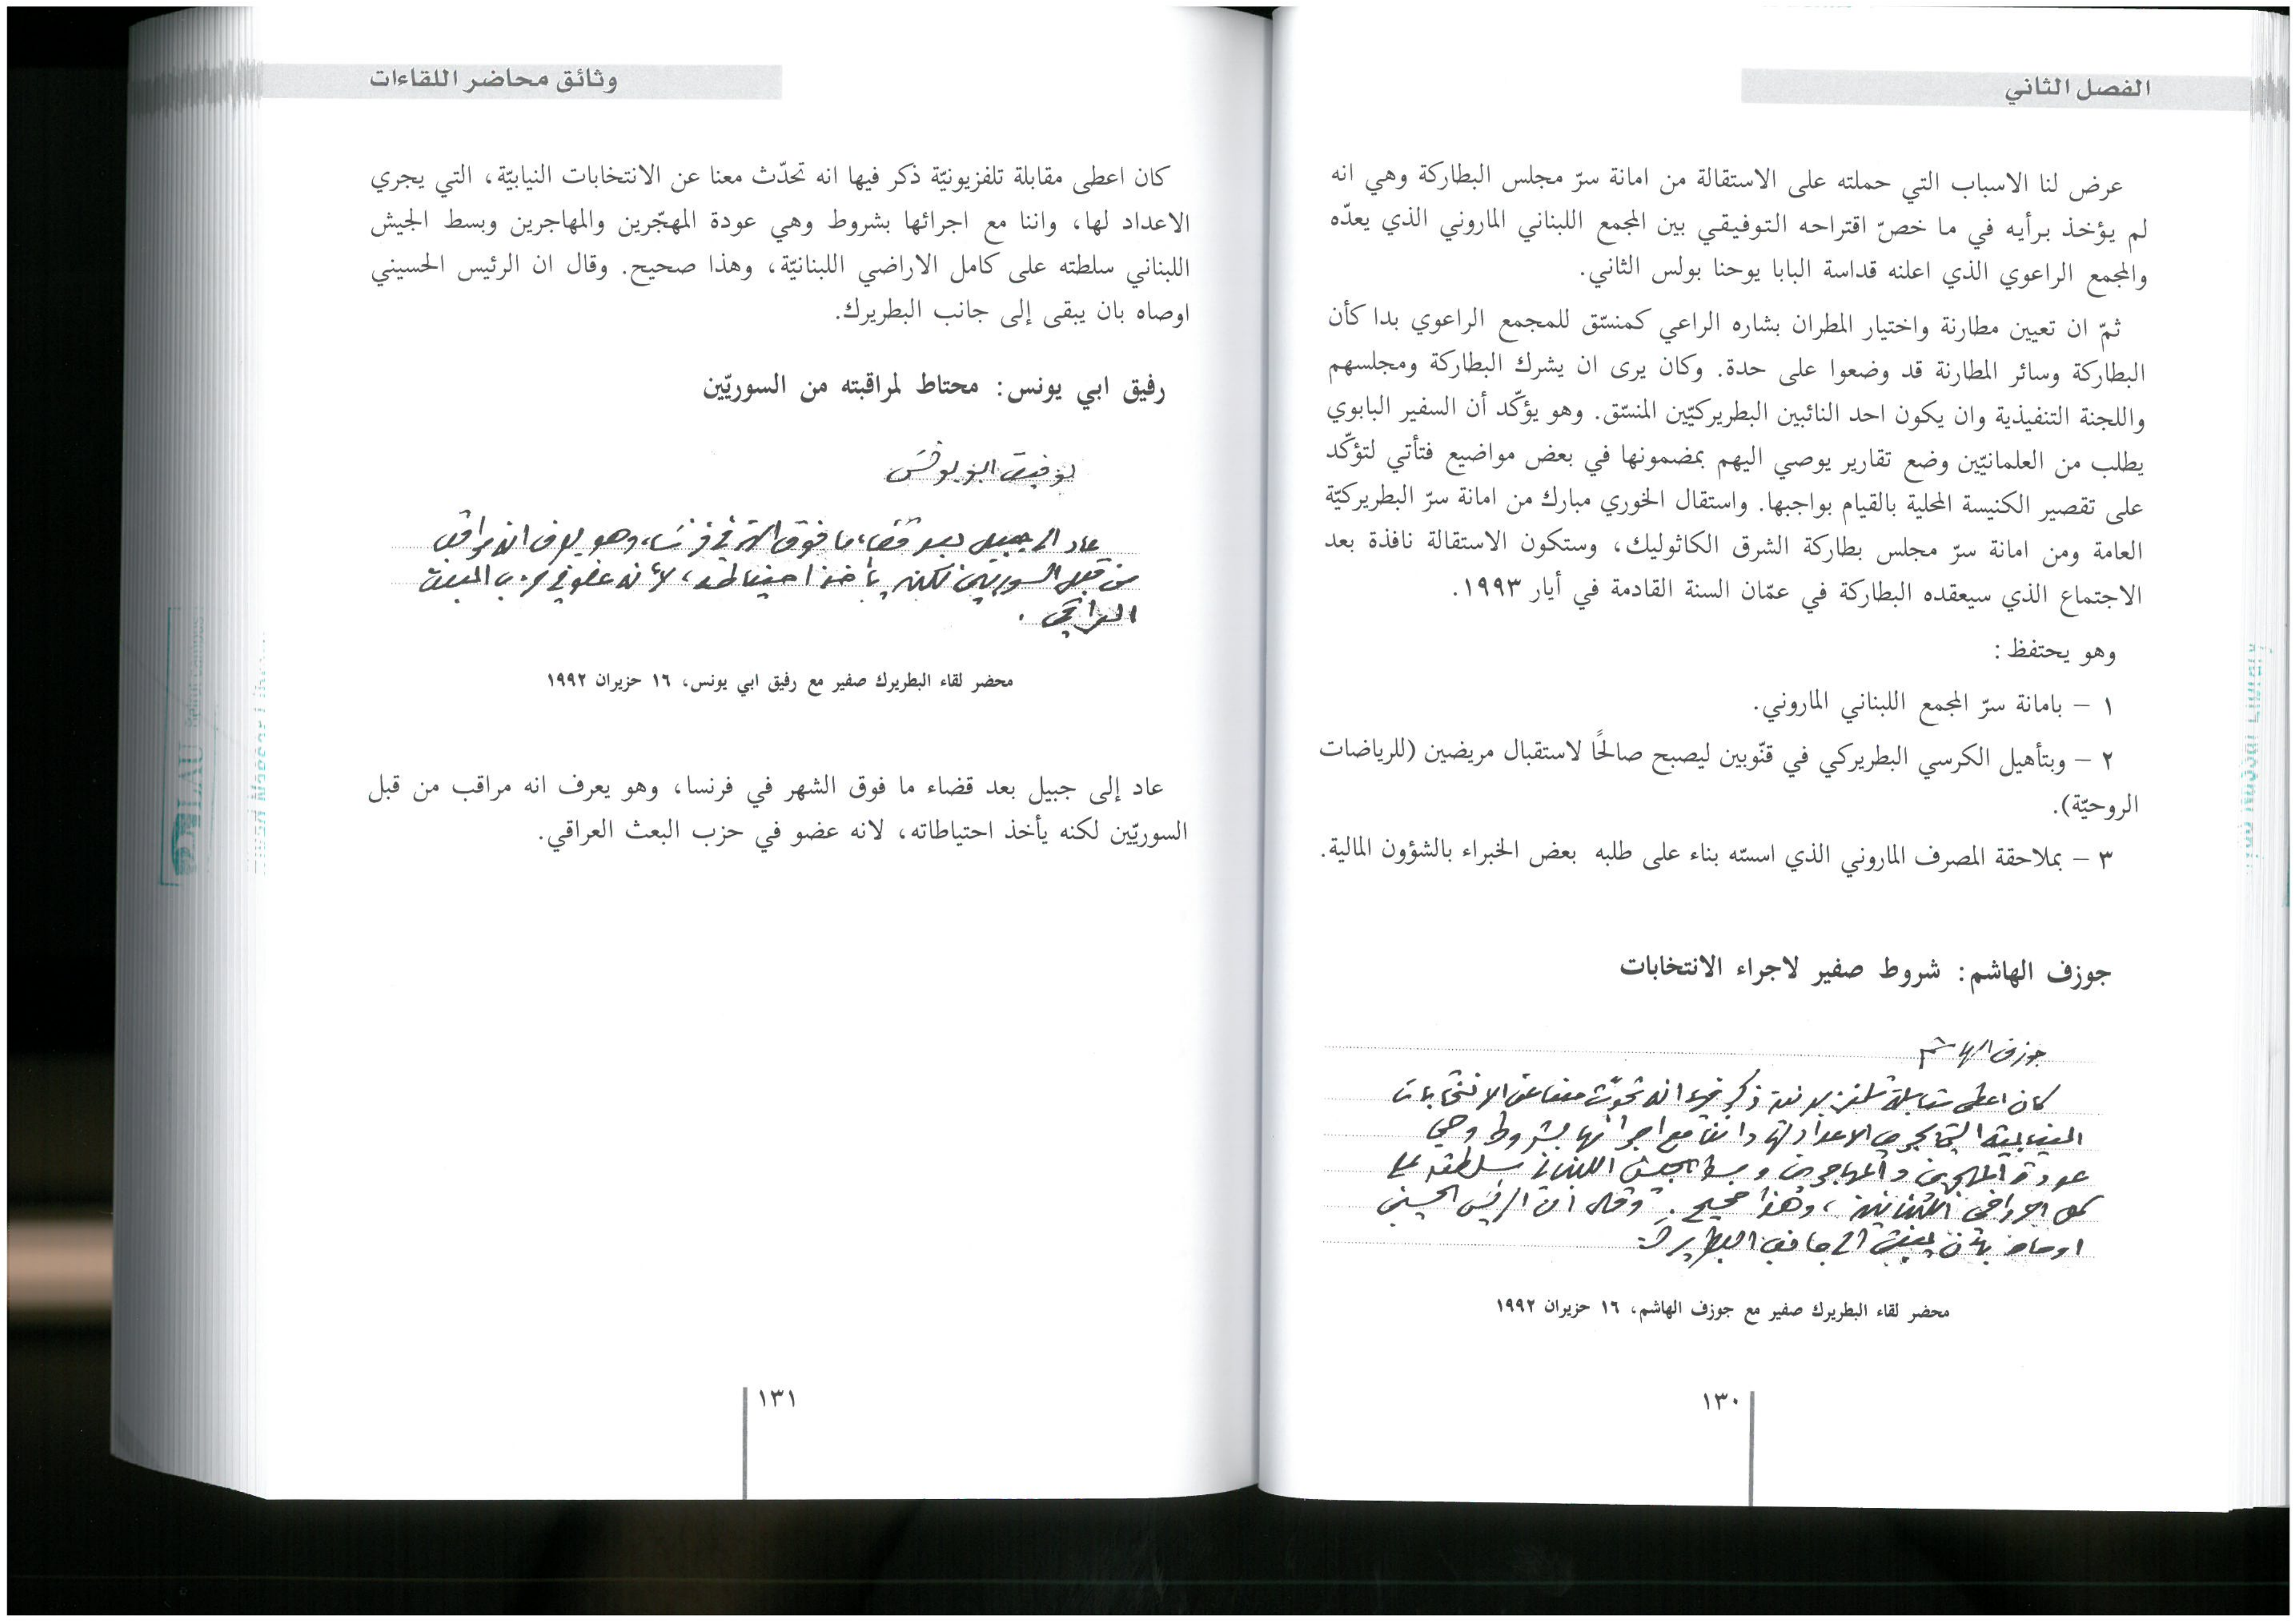 الفصل الثاني
عرض لنا الاسباب التي حملته على الاستقالة من امانة سرّ مجلس البطاركة وهي انه
لم يؤخذ برأيه في ما خصّ اقتراحه التوفيقي بين المجمع اللبناني الماروني الذي يعدّه
والمجمع الراعوي الذي اعلنه قداسة البابا يوحنا بولس الثاني.
ثمّ ان تعيين مطارنة واختيار المطران بشاره الراعي كمنسّق للمجمع الراعوي بدا كأن
البطاركة وسائر المطارنة قد وضعوا على حدة. وكان يرى ان يشرك البطاركة ومجلسهم
واللجنة التنفيذية وان يكون احد النائبين البطريركيّين المنسّق. وهو يؤكّد أن السفير البابوي
يطلب من العلمانيّين وضع تقارير يوصي اليهم بمضمونها في بعض مواضيع فتأتي لتؤكّد
على تقصير الكنيسة المحلية بالقيام بواجبها. واستقال الخوري مبارك من امانة سرّ البطريركيّة
العامة ومن امانة سرّ مجلس بطاركة الشرق الكاثوليك، وستكون الاستقالة نافذة بعد
الاجتماع الذي سيعقده البطاركة في عمّان السنة القادمة في أيار ١٩٩٣.
وهو يحتفظ:
١ – بامانة سرّ المجمع اللبناني الماروني.
٢ – وبتأهيل الكرسي البطريركي في قنّوبين ليصبح صالحًا لاستقبال مريضين (للرياضات
الروحيّة).
٣ – بملاحقة المصرف الماروني الذي اسسّه بناء على طلبه بعض الخبراء بالشؤون المالية.
جوزف الهاشم: شروط صفير لاجراء الانتخابات
جوزف الهاشم
كان اعطى مقابلة تلفزيونية ذكر فيها انه تحدّث معنا عن الانتخابات
النيابية التي يجري الاعداد لها واننا مع اجرائها بشروط وهي
عودة المهجرين والمهاجرين وبسط الجيش اللبناني سلطته على
كامل الاراضي اللبنانية، وهذا صحيح. وقال ان الرئيس الحسيني
اوصاه بأن يبقى الى جانب البطريرك.
محضر لقاء البطريرك صفير مع جوزف الهاشم، ١٦ حزيران ١٩٩٢
١٣٠
وثائق محاضر اللقاءات
كان اعطى مقابلة تلفزيونيّة ذكر فيها انه تحدّث معنا عن الانتخابات النيابيّة، التي يجري
الاعداد لها، واننا مع اجرائها بشروط وهي عودة المهجّرين والمهاجرين وبسط الجيش
اللبناني سلطته على كامل الاراضي اللبنانيّة، وهذا صحيح. وقال ان الرئيس الحسيني
اوصاه بان يبقى إلى جانب البطريرك.
رفيق ابي يونس: محتاط لمراقبته من السوريّين
ابو يونس
عاد الى جبيل بعد قضاء ما فوق الشهر في فرنسا، وهو يعرف انه مراقب
من قبل السوريين لكنه يأخذ احتياطاته، لأنه عضو في حزب البعث
العراقي.
محضر لقاء البطريرك صفير مع رفيق ابي يونس، ١٦ حزيران ١٩٩٢
عاد إلى جبيل بعد قضاء ما فوق الشهر في فرنسا، وهو يعرف انه مراقب من قبل
السوريّين لكنه يأخذ احتياطاته، لانه عضو في حزب البعث العراقي.
١٣١
LAU